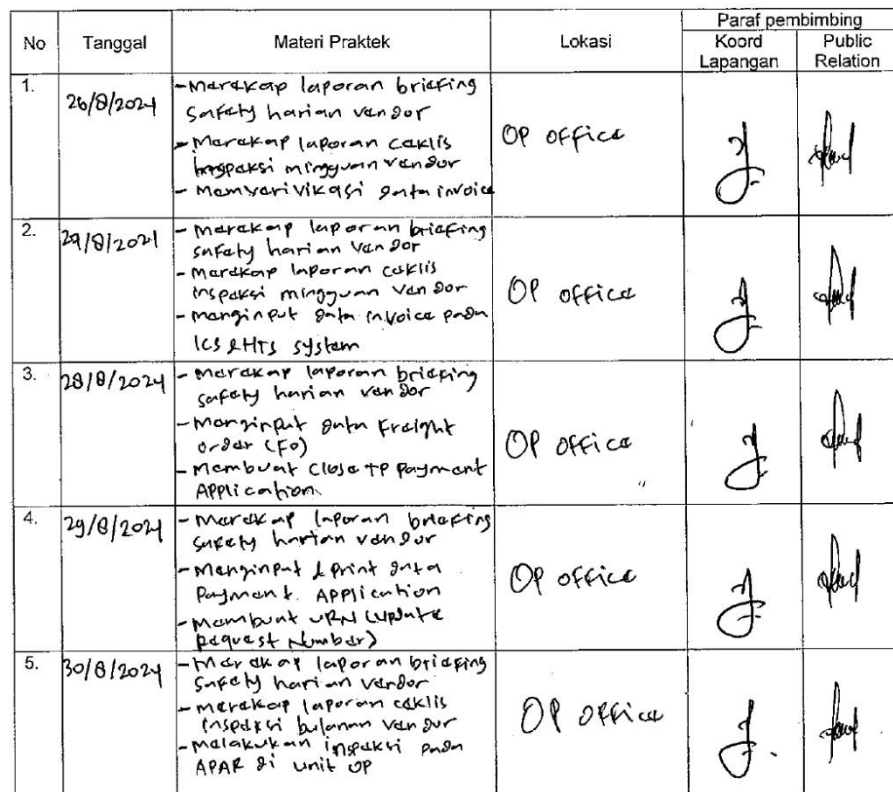 No Tanggal Materi Praktek Lokasi Paraf pembimbing
Koord Lapangan Public Relation
1. 26/8/2024 -Merekap laporan briefing
safety harian vendor
-Merekap laporan ceklis
inspeksi mingguan vendor
- Memverivikasi data invoice
OP office
2. 29/8/2021 - Merekap laporan briefing
safety harian vendor
- Merekap laporan ceklis
inspeksi mingguan vendor
- Menginput data invoice pada
ICS & HTS system
OP office
3. 28/8/2024 - Merekap laporan briefing
safety harian vendor
- Menginput data Freight
order (FO)
- Membuat Close TP payment
Application.
OP office
4. 29/8/2024 - Merekap laporan briefing
safety harian vendor
- Menginput & print data
Payment. Application
- Membuat URN (Update
Request Number)
OP office
5. 30/8/2024 - Merekap laporan briefing
safety harian vendor
- merekap laporan ceklis
inspeksi bulanan vendor
- Melakukan inspeksi pada
APAR di unit OP
OP office